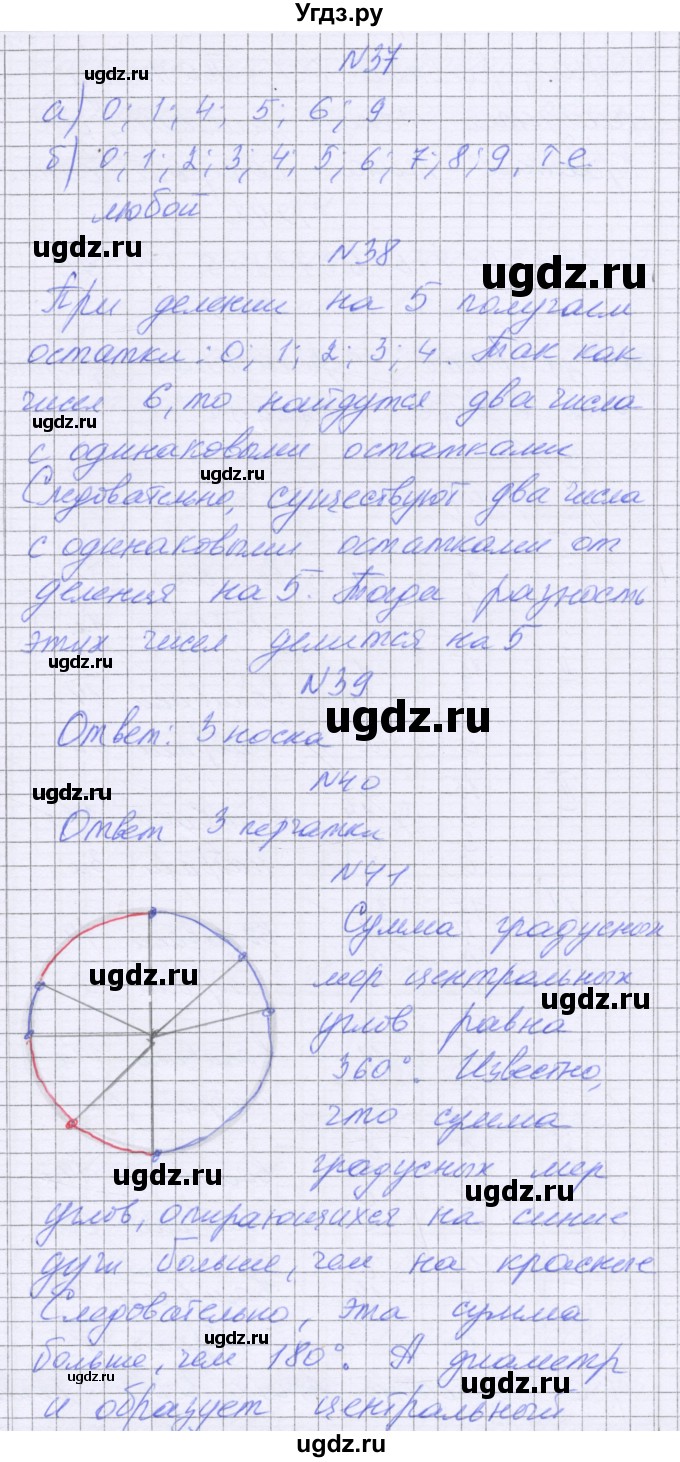 Угдз.ру
N37
ugdz.ru
а) 0; 1; 4; 5; 6; 9
б) 0; 1; 2; 3; 4; 5; 6; 7; 8; 9, т.е.
любой
ugdz.ru
N38
ugdz.ru
При делении на 5 получаем
остатки: 0; 1; 2; 3; 4. Так как
чисел 6, то найдутся два числа
ugdz.ru
с одинаковыми остатками
ugdz.ru
Следовательно, существуют два числа
с одинаковыми остатками от
деления на 5. Тогда разность
этих чисел делится на 5
ugdz.ru
N39
ugdz.ru
Ответ: 3 носка
N40
ugdz.ru
Ответ 3 перчатки
N41
Сумма градусных
ugdz.ru
мер центральных
ugdz.ru
углов равна
360°. Известно,
что сумма
градусных мер
ugdz.ru
ugdz.ru
углов, опирающихся на синие
дуги больше, чем на красные
Следовательно, эта сумма
ugdz.ru
больше, чем 180°. А диаметр
ugdz.ru
ugdz.ru
и образует центральный
ugdz.ru